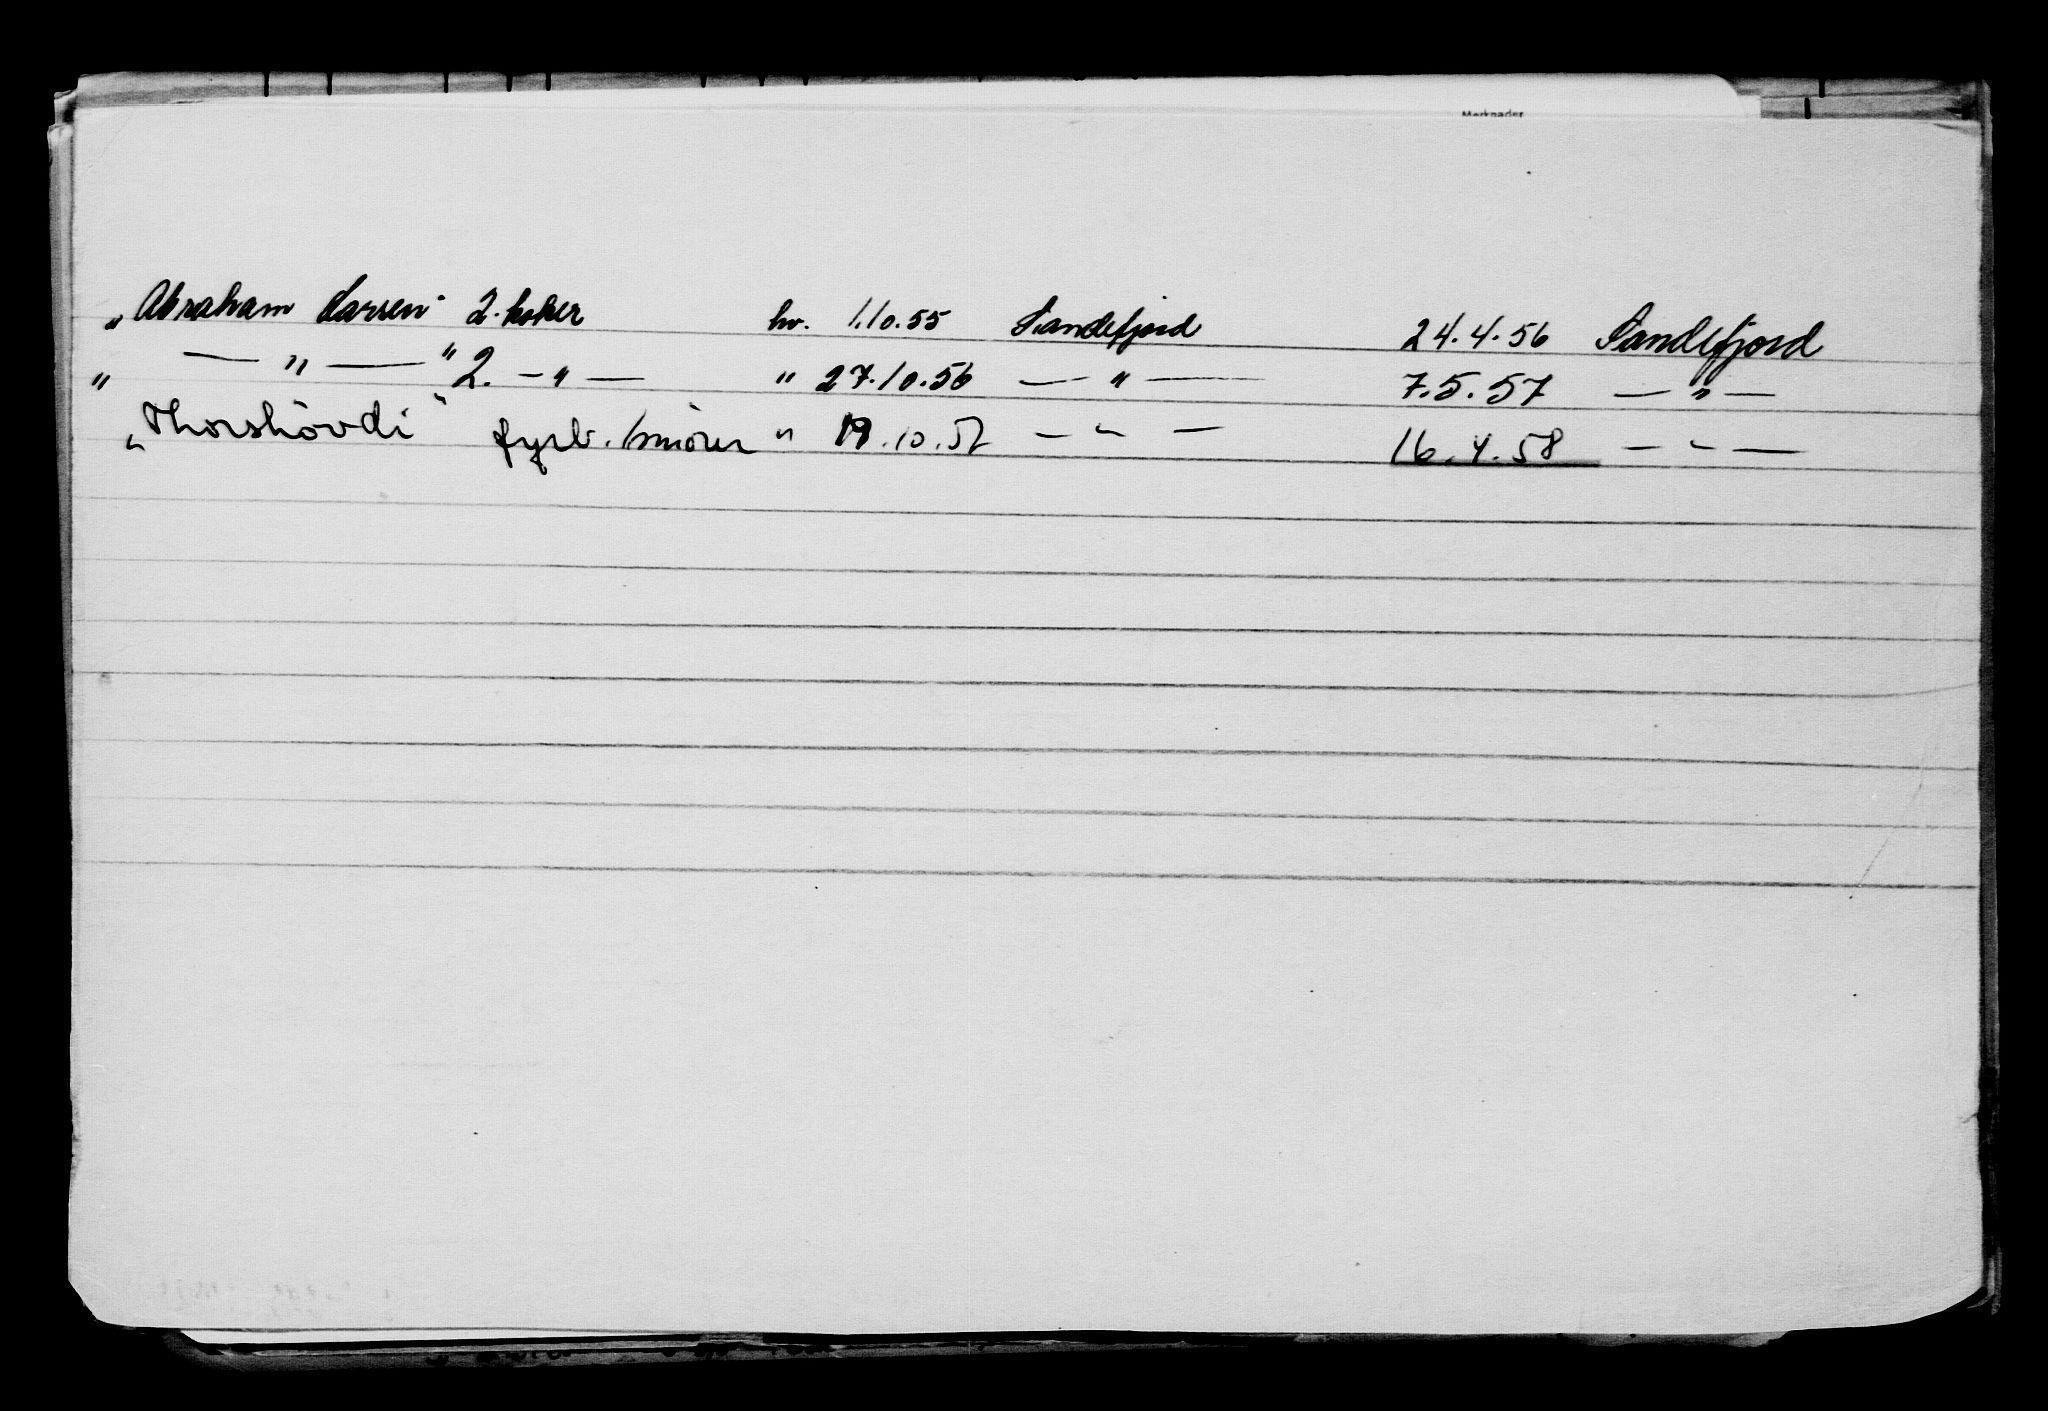 Merknader
„Abraham Larsen" 2. koker hv. 1.10.55 Sandefjord 24.4.56 Sandefjord
" — " — " 2. — " — " 27.10.56 — " — 7.5.57 — " —
„Thorshövdi" fyrb./smörer " 19.10.57 — " — 16.4.58 — " —